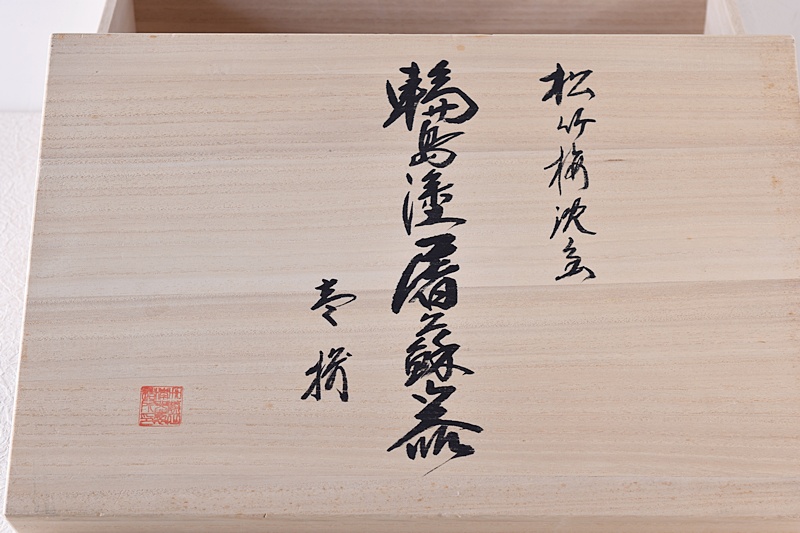 松竹梅沈金
輪島塗屠蘇器
壱揃